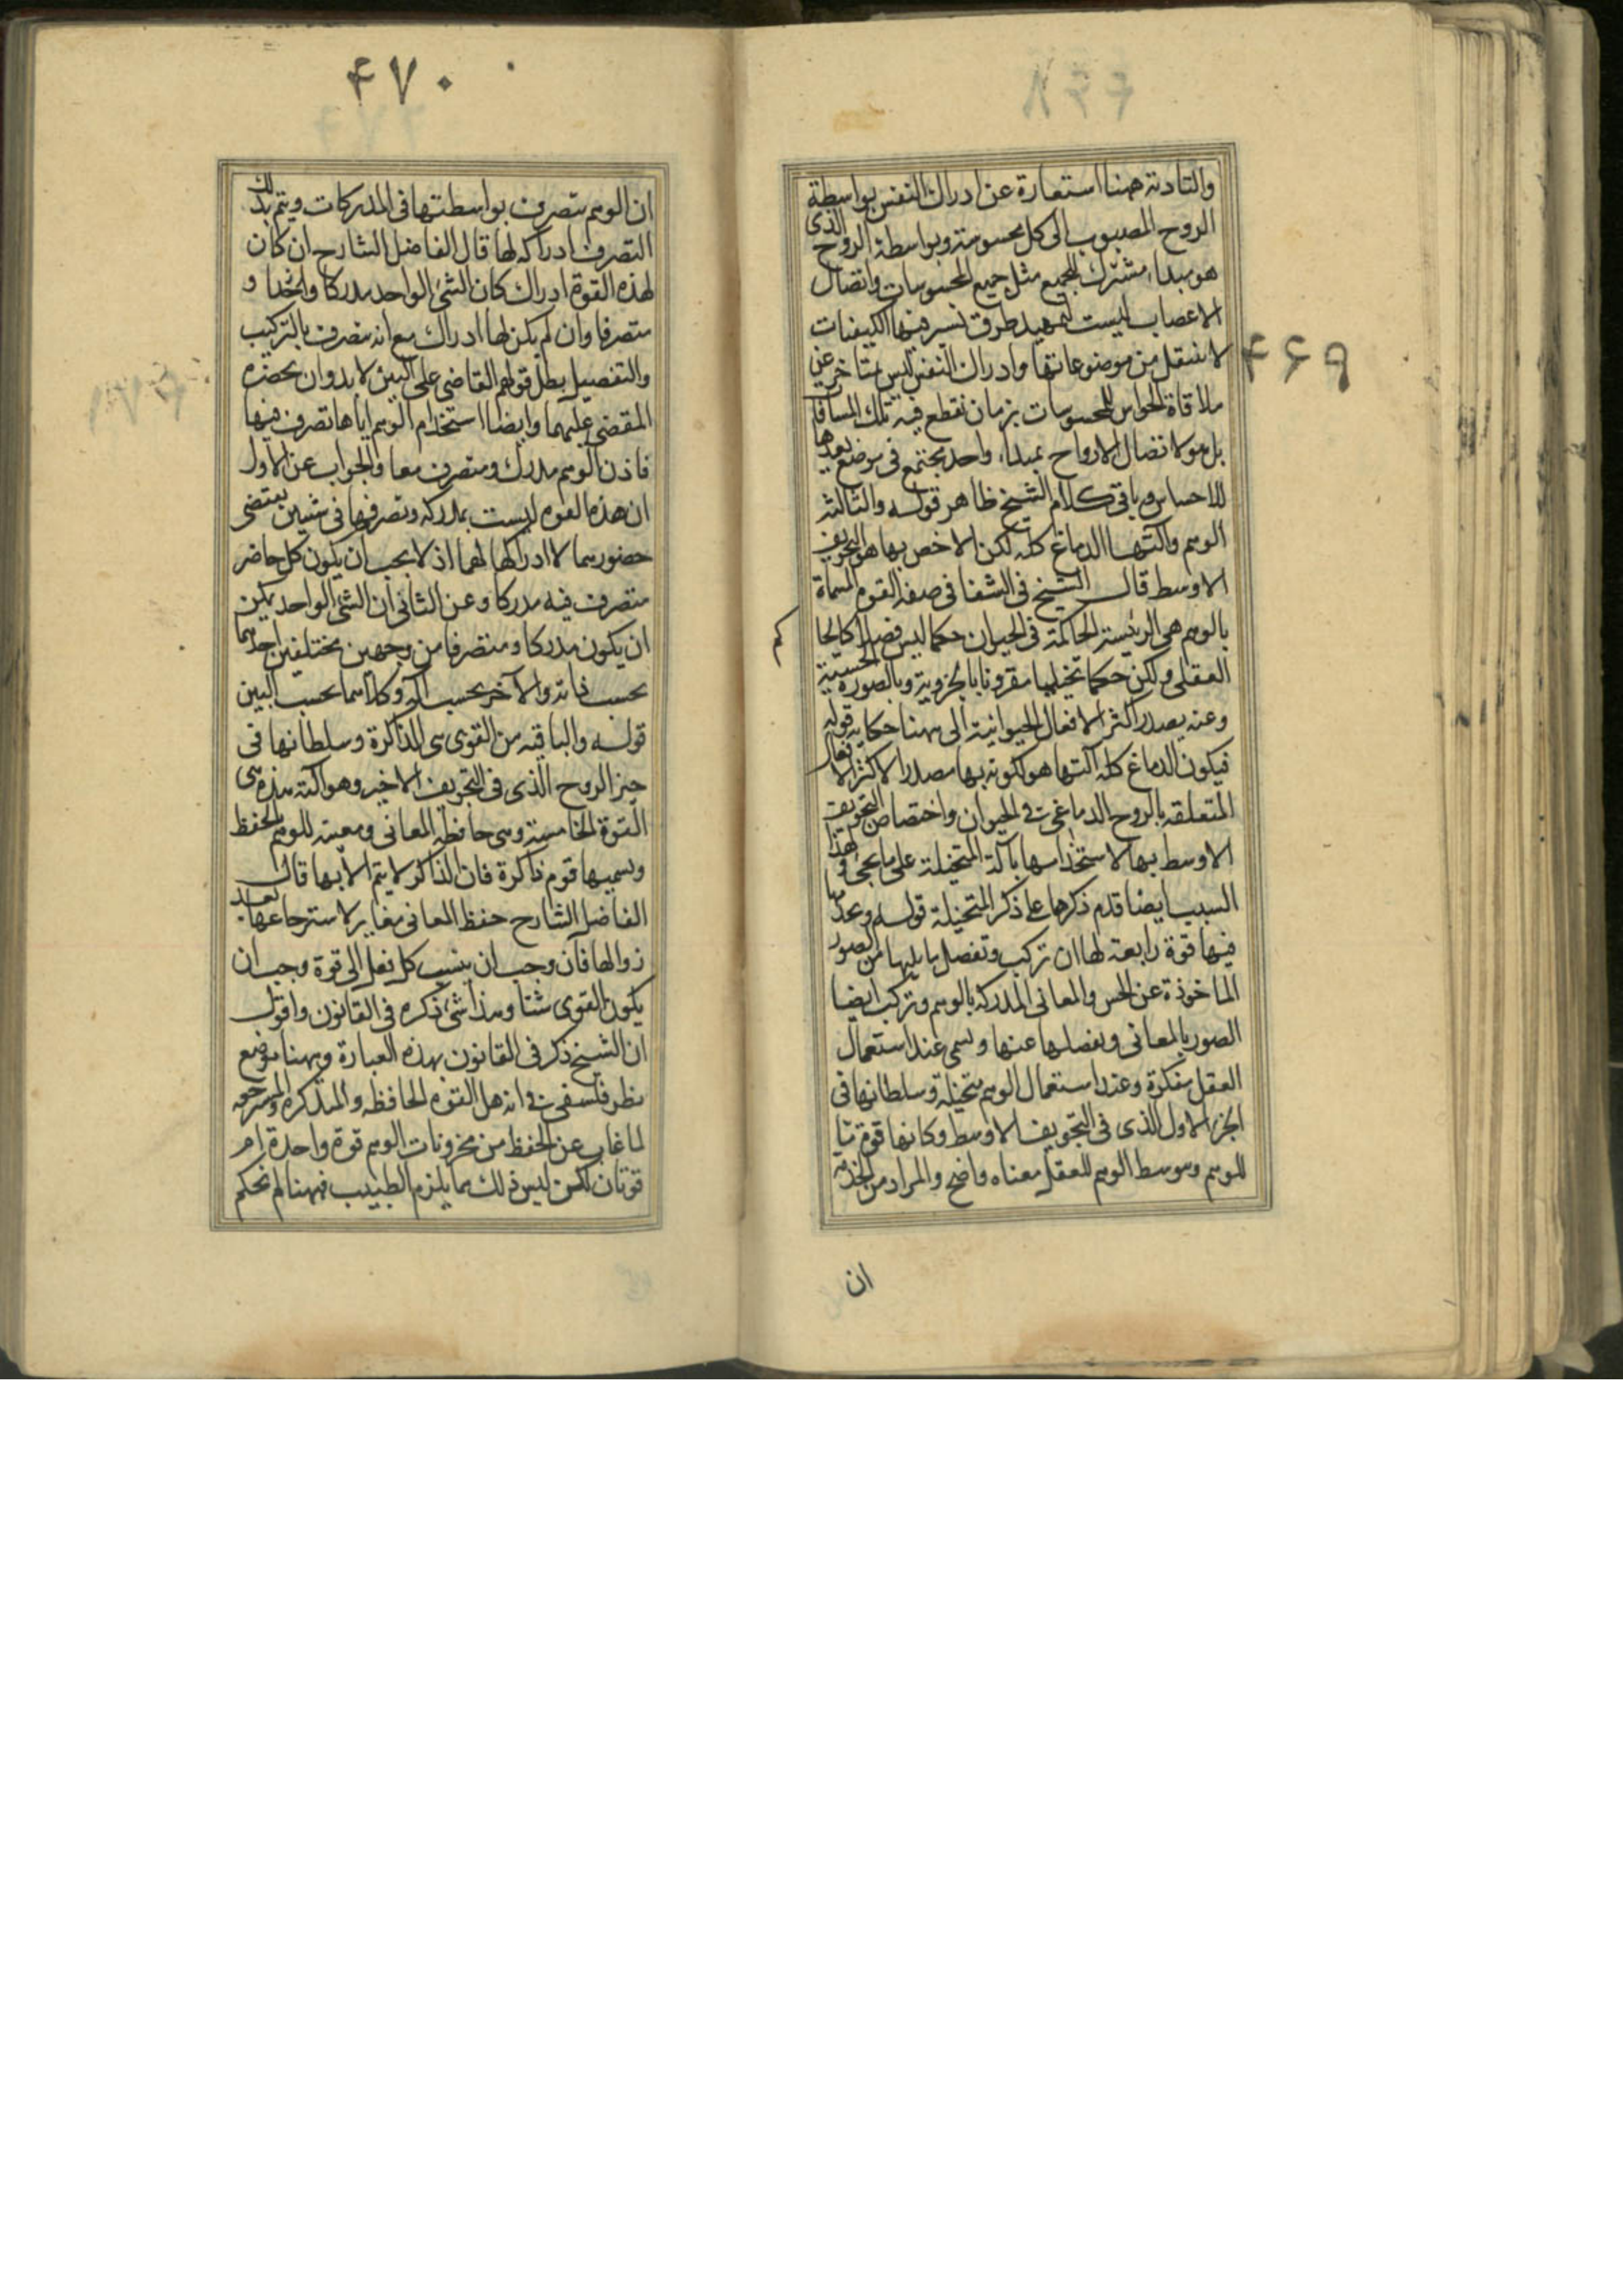 ۴۶۹
والتادية ههنا استعارة عن ادراك النفس بواسطة
الروح المصبوب الى كل محسوسة وبواسطة الروح الذى
هو مبداء مشترك للجميع مثل جميع المحسوسات واتصال
الاعصاب ليست لتمهيد طرق تسير فيها الكيفيات
لا تنتقل من موضوعاتها وادراك النفس ليس بتاخر عن
ملاقاة الحواس للمحسوسات بزمان تقطع فيه تلك المسافة
بل هو لاتصال الارواح بمبداء واحد مجتمع فى موضع بعدها
للاحساس وباقى كلام الشيخ ظاهر قوله والثالثة
الوهم وآلتها الدماغ كله لكن الاخص بها هو التجويف
الاوسط قال الشيخ فى الشفا فى صفة القوة المسماة
بالوهم هى الرئيسة الحاكمة فى الحيوان حكما ليس فصلا كالحكم
العقلى ولكن حكما تخيليا مقرونا بالجزوية وبالصورة الحسية
وعنه يصدر اكثر الافعال الحيوانية الى ههنا حكاية قوله
فيكون الدماغ كله آلتها هو لكونه بها مصدر الاكثر الافعال
المتعلقة بالروح الدماغى فى الحيوان واختصاص التجويف
الاوسط بها لاستخدامها بآلة المتخيلة على ما يجئ ولهذا
السبب ايضا قدم ذكرها على ذكر المتخيلة قوله وبحذ
فيها قوة رابعة لها ان تركب وتفصل ما يليها من الصور
الماخوذة عن الحس والمعانى المدركة بالوهم وتركب ايضا
الصور بالمعانى وتفصلها عنها وتسمى عند استعمال
العقل مفكرة وعند استعمال الوهم متخيلة وسلطانها فى
الجزء الاول الذى فى التجويف الاوسط وكانها قوة ما
للوهم وبتوسط الوهم للعقل معناه واضح والمراد من الخدمة
ان
۴۷۰
ان الوهم يتصرف بواسطتها فى المدركات ويتم بذلك
التصرف ادراكه لها قال الفاضل الشارح ان كان
لهذه القوة ادراك كان الشئ الواحد مدركا واخذا و
متصرفا وان لم يكن لها ادراك مع انه متصرف بالتركيب
والتفصيل بطل قولهم القاضى على الشيئين لا بد وان يحضره
المقضى عليهما وايضا استخدام الوهم اياها تصرف فيها
فاذن الوهم مدرك ومتصرف معا والجواب عن الاول
ان هذه القوة ليست بمدركة وتصرفها فى شيئين يقتضى
حضورهما لا ادراكها لهما اذ لا يجب ان يكون كل حاضر
متصرف فيه مدركا وعن الثانى ان الشئ الواحد يمكن
ان يكون مدركا ومتصرفا من وجهين مختلفين احدهما
بحسب ذاته والآخر بحسب آلة وكلاهما بحسب آلتين
قوله والباقية من القوى هى الذاكرة وسلطانها فى
حيز الروح الذى فى التجويف الاخير وهو آلته هذه هى
القوة الخامسة وهى حافظة المعانى ومعينة للوهم بالحفظ
ويسميها قوم ذاكرة فان الذاكر لا يتم الا بها قال
الفاضل الشارح حفظ المعانى مغاير لاسترجاعها بعد
زوالها فان وجب ان ينسب كل فعل الى قوة وجب ان
يكون القوى ستا وهذا شئ ذكره فى القانون واقول
ان الشيخ ذكر فى القانون بهذه العبارة وههنا موضع
نظر فلسفى فى انه هل القوة الحافظة والمتذكرة المسترجعة
لما غاب عن الحفظ من مخزونات الوهم قوة واحدة ام
قوتان لكن ليس ذلك مما يلزم الطبيب فههنا لم يحكم